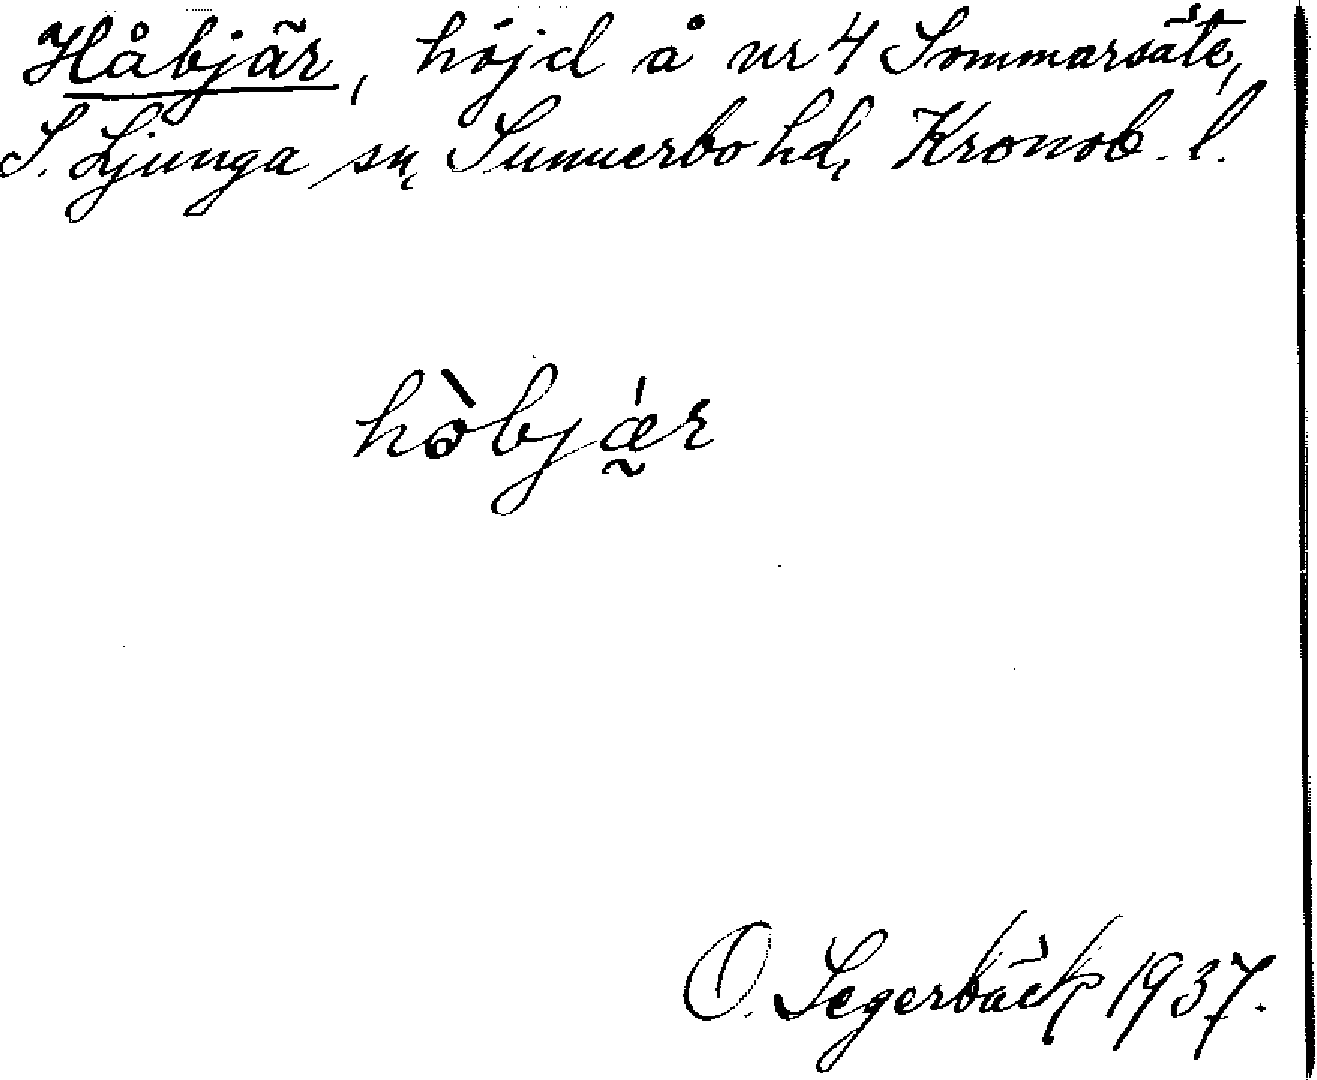 Håbjär, höjd å nr 4 Sommarsäte,
S. Ljunga sn, Sunnerbo hd, Kronob. l.
hòbjǽ̰r
O. Segerbäck 1937.